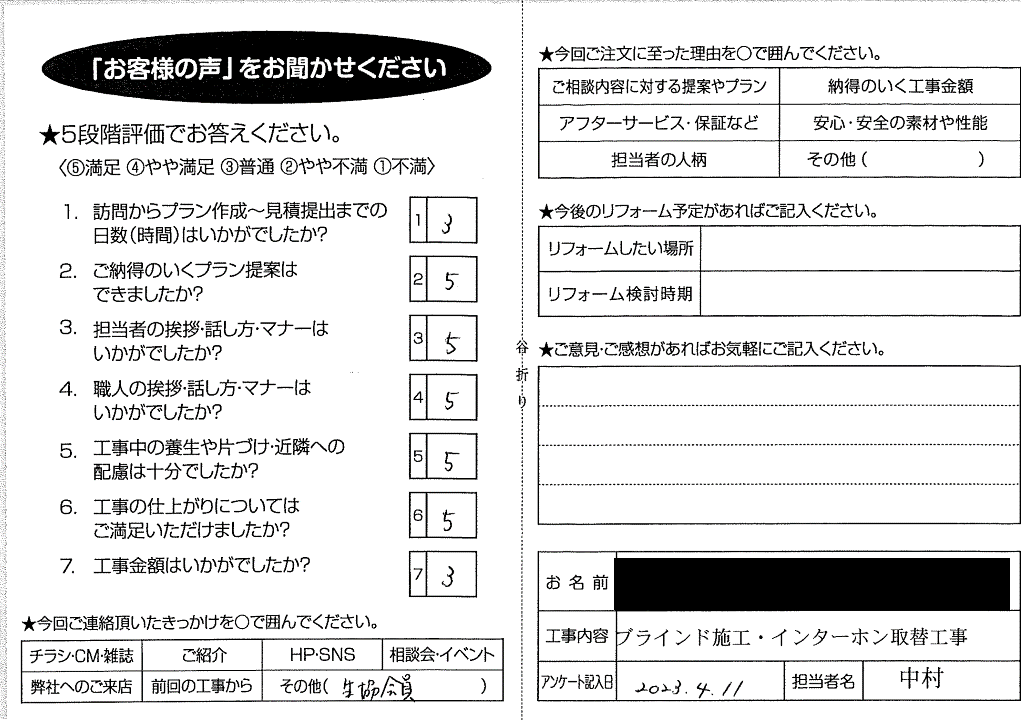 「お客様の声」をお聞かせください
★5段階評価でお答えください。
〈⑤満足 ④やや満足 ③普通 ②やや不満 ①不満〉
1. 訪問からプラン作成～見積提出までの
日数(時間)はいかがでしたか?
1 3
2. ご納得のいくプラン提案は
できましたか?
2 5
3. 担当者の挨拶・話し方・マナーは
いかがでしたか?
3 5
4. 職人の挨拶・話し方・マナーは
いかがでしたか?
4 5
5. 工事中の養生や片づけ・近隣への
配慮は十分でしたか?
5 5
6. 工事の仕上がりについては
ご満足いただけましたか?
6 5
7. 工事金額はいかがでしたか?
7 3
★今回ご連絡頂いたきっかけを○で囲んでください。
チラシ・CM・雑誌 ご紹介 HP・SNS 相談会・イベント
弊社へのご来店 前回の工事から その他( 生協会員 )
谷折り
★今回ご注文に至った理由を○で囲んでください。
ご相談内容に対する提案やプラン 納得のいく工事金額
アフターサービス・保証など 安心・安全の素材や性能
担当者の人柄 その他 ( )
★今後のリフォーム予定があればご記入ください。
リフォームしたい場所
リフォーム検討時期
★ご意見・ご感想があればお気軽にご記入ください。
お名前
工事内容 ブラインド施工・インターホン取替工事
アンケート記入日 2023.4.11 担当者名 中村